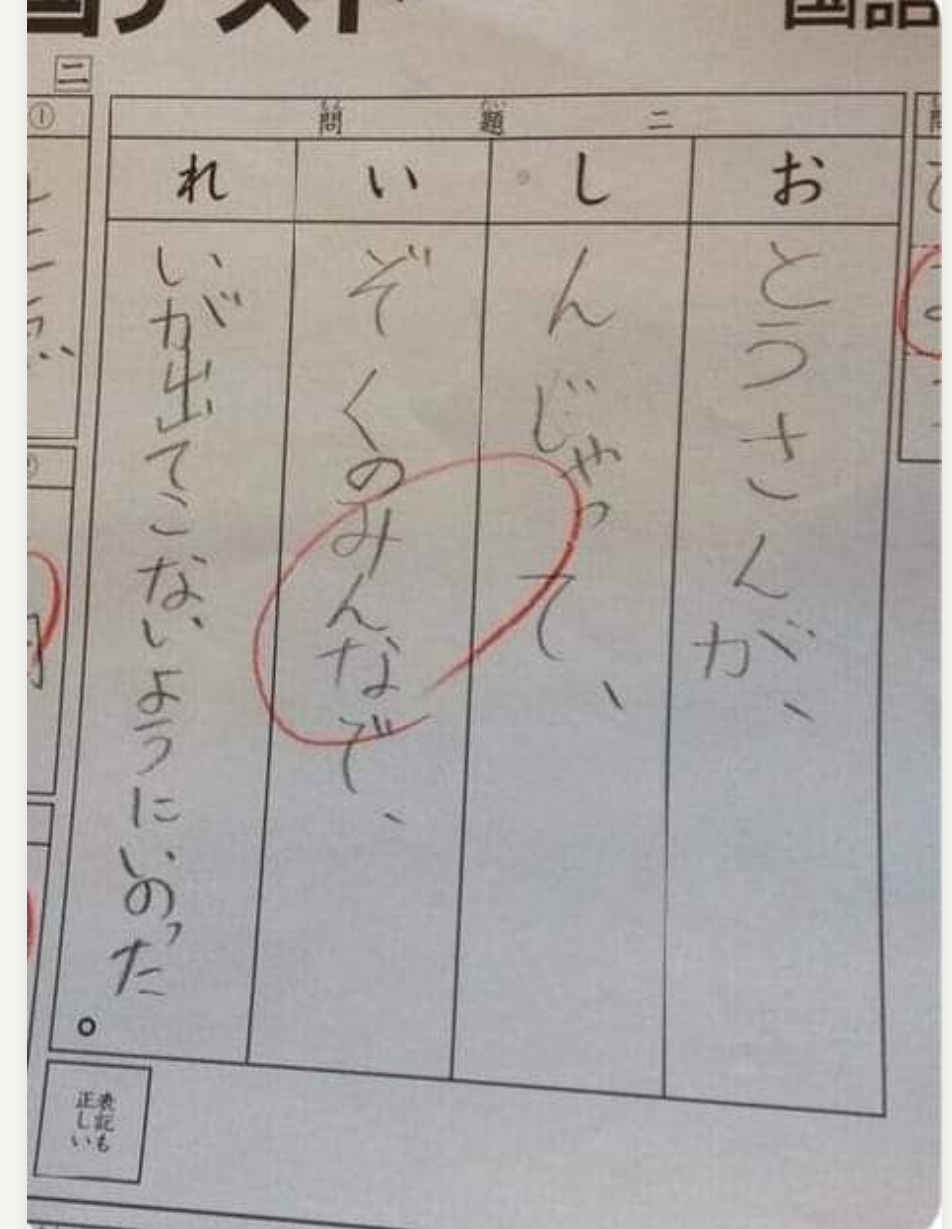 テスト
国語
問題二
おとうさんが、
しんじゃって、
いぞくのみんなで、
れいが出てこないようにいのった。
表記も
正しい
二
①